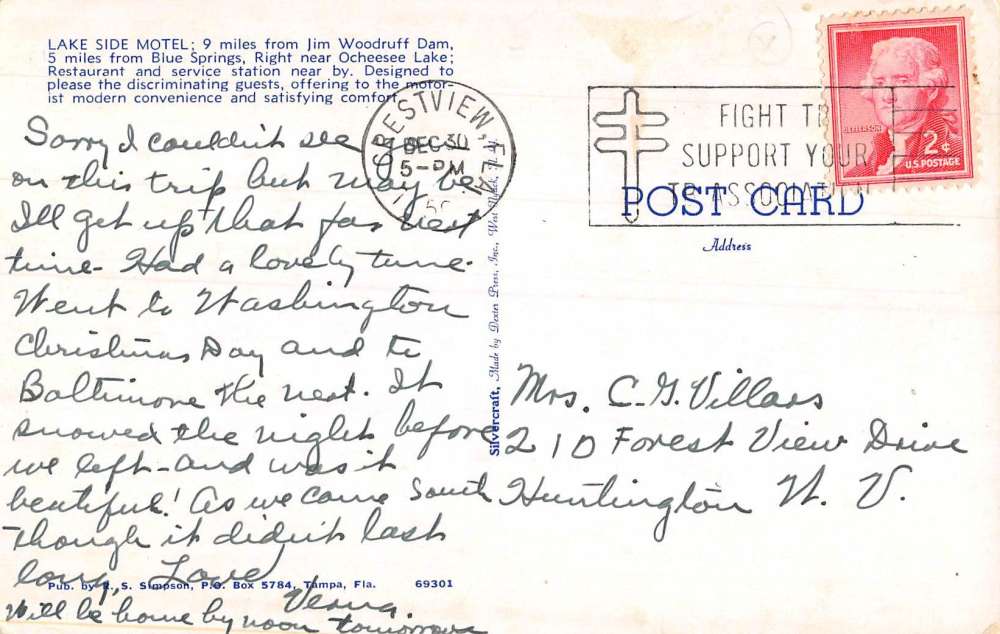 LAKE SIDE MOTEL; 9 miles from Jim Woodruff Dam,
5 miles from Blue Springs, Right near Ocheesee Lake;
Restaurant and service station near by. Designed to
please the discriminating guests, offering to the motor-
ist modern convenience and satisfying comfort.
Sorry I couldn't see you
on this trip but may be
I'll get up that far next
time - Had a lovely time.
Went to Washington
Christmas Day and to
Baltimore the next. It
snowed the night before
we left - and was it
beautiful! As we came South
though it didn't last
long, Love
Verna.
Will be home by noon tomorrow
Pub. by R. S. Simpson, P.O. Box 5784, Tampa, Fla. 69301
CRESTVIEW, FLA.
DEC 30
5-PM
FIGHT TB
SUPPORT YOUR
TB ASSOCIATION
JEFFERSON
2¢
U.S. POSTAGE
POST CARD
Address
Silvercraft, Made by Dexter Press, Inc., West Nyack, N.Y.
Mrs. C. G. Villars
210 Forest View Drive
Huntington W. V.